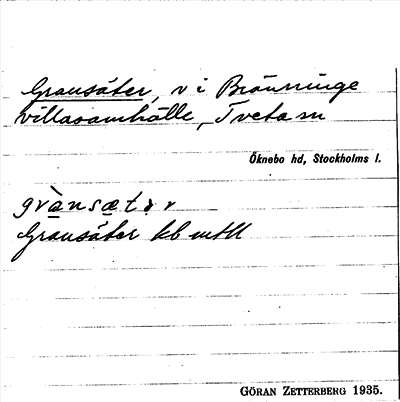 Gransäter, v i Brönninge
villasamhälle, Tveta sn
Öknebo hd, Stockholms l.
grànsætər
Gransäter
GÖRAN ZETTERBERG 1935.